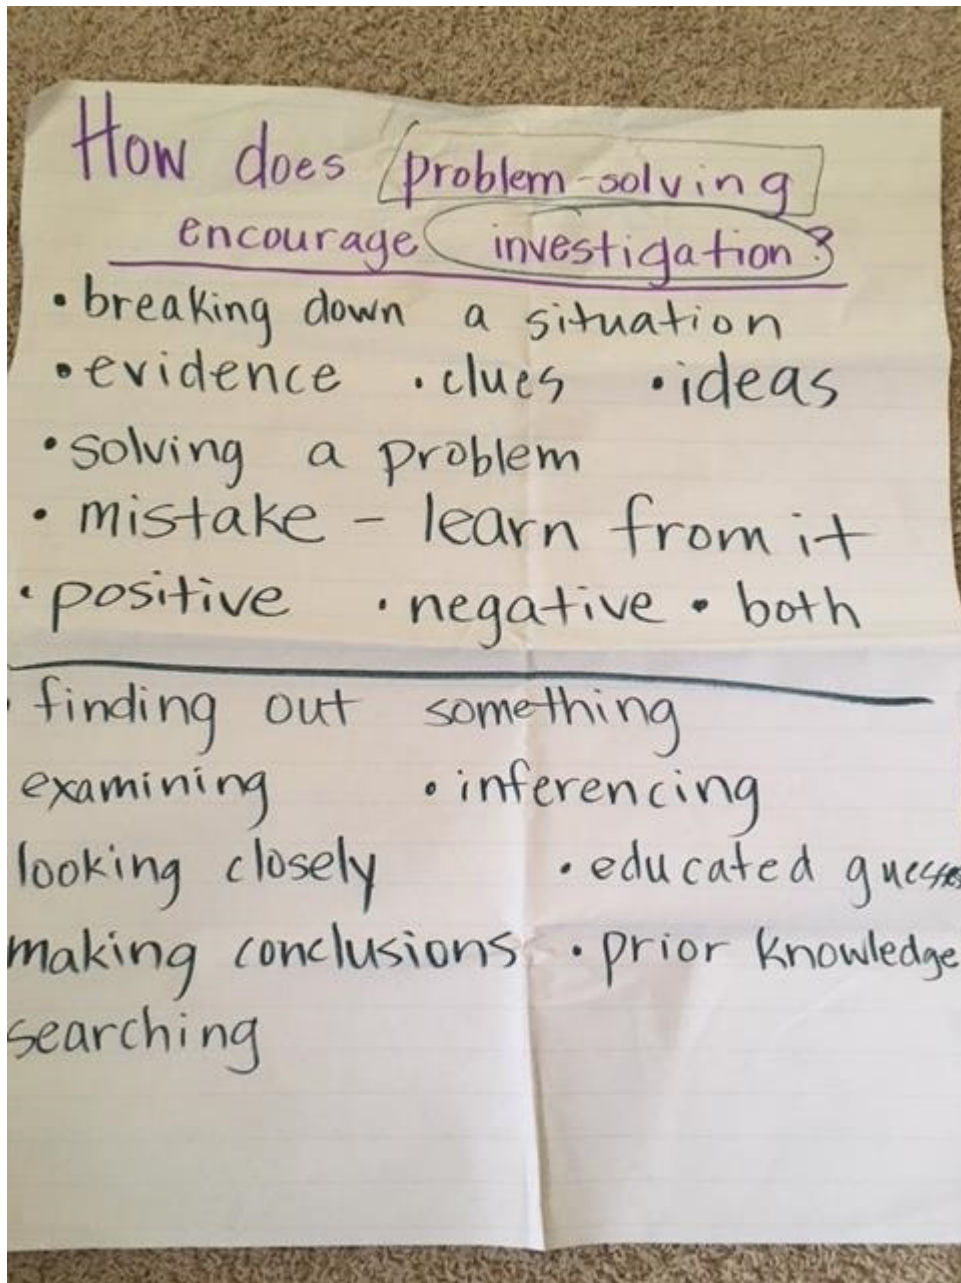 How does problem-solving
encourage investigation?
• breaking down a situation
• evidence • clues • ideas
• solving a problem
• mistake - learn from it
• positive • negative • both
• finding out something
examining • inferencing
looking closely • educated guesses
making conclusions • prior knowledge
searching